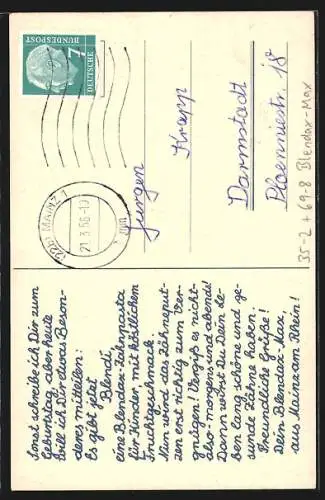 7
DEUTSCHE
BUNDESPOST
MAINZ 1
21.3.66-10
Jürgen
Krapp
Darmstadt
Ploenniestr. 18
35-2 + 69-8 Blendax-Max
Sonst schreibe ich Dir zum
Geburtstag, aber heute
will ich Dir etwas Beson-
deres mitteilen:
Es gibt jetzt
Blendi,
eine Blendax-Zahnpasta
für Kinder mit köstlichem
Fruchtgeschmack.
Nun wird das Zähneput-
zen erst richtig zum Ver-
gnügen! Vergiß es nicht:
also morgens und abends!
Dann wirst Du Dein Le-
ben lang schöne und ge-
sunde Zähne haben.
Freundliche Grüße!
Dein Blendax-Max,
aus Mainz am Rhein!